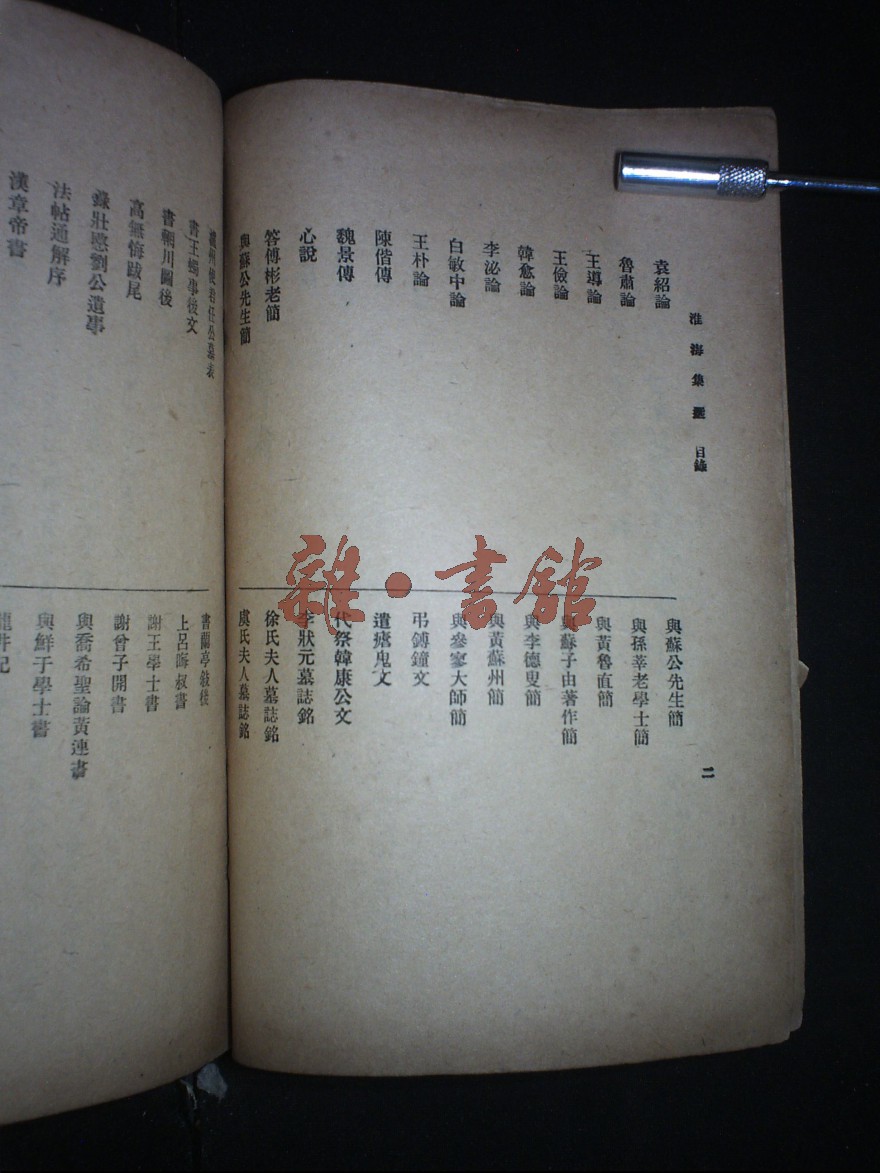 淮海集選 目錄
袁紹論
魯肅論
王導論
王儉論
韓愈論
李泌論
白敏中論
王朴論
陳偕傳
魏景傳
心說
答傅彬老簡
與蘇公先生簡
與蘇公先生簡
與孫莘老學士簡
與黃魯直簡
與蘇子由著作簡
與李德叟簡
與黃蘇州簡
與參寥大師簡
弔鎛鐘文
遣瘧鬼文
代祭韓康公文
李狀元墓誌銘
徐氏夫人墓誌銘
虞氏夫人墓誌銘
二
俞君任公墓表
書王蠋事後文
書輞川圖後
高無悔跋尾
錄壯愍劉公遺事
法帖通解序
漢章帝書
書蘭亭敍後
上呂晦叔書
謝王學士書
謝曾子開書
與喬希聖論黃連書
與鮮于學士書
龍井記
雜·書館